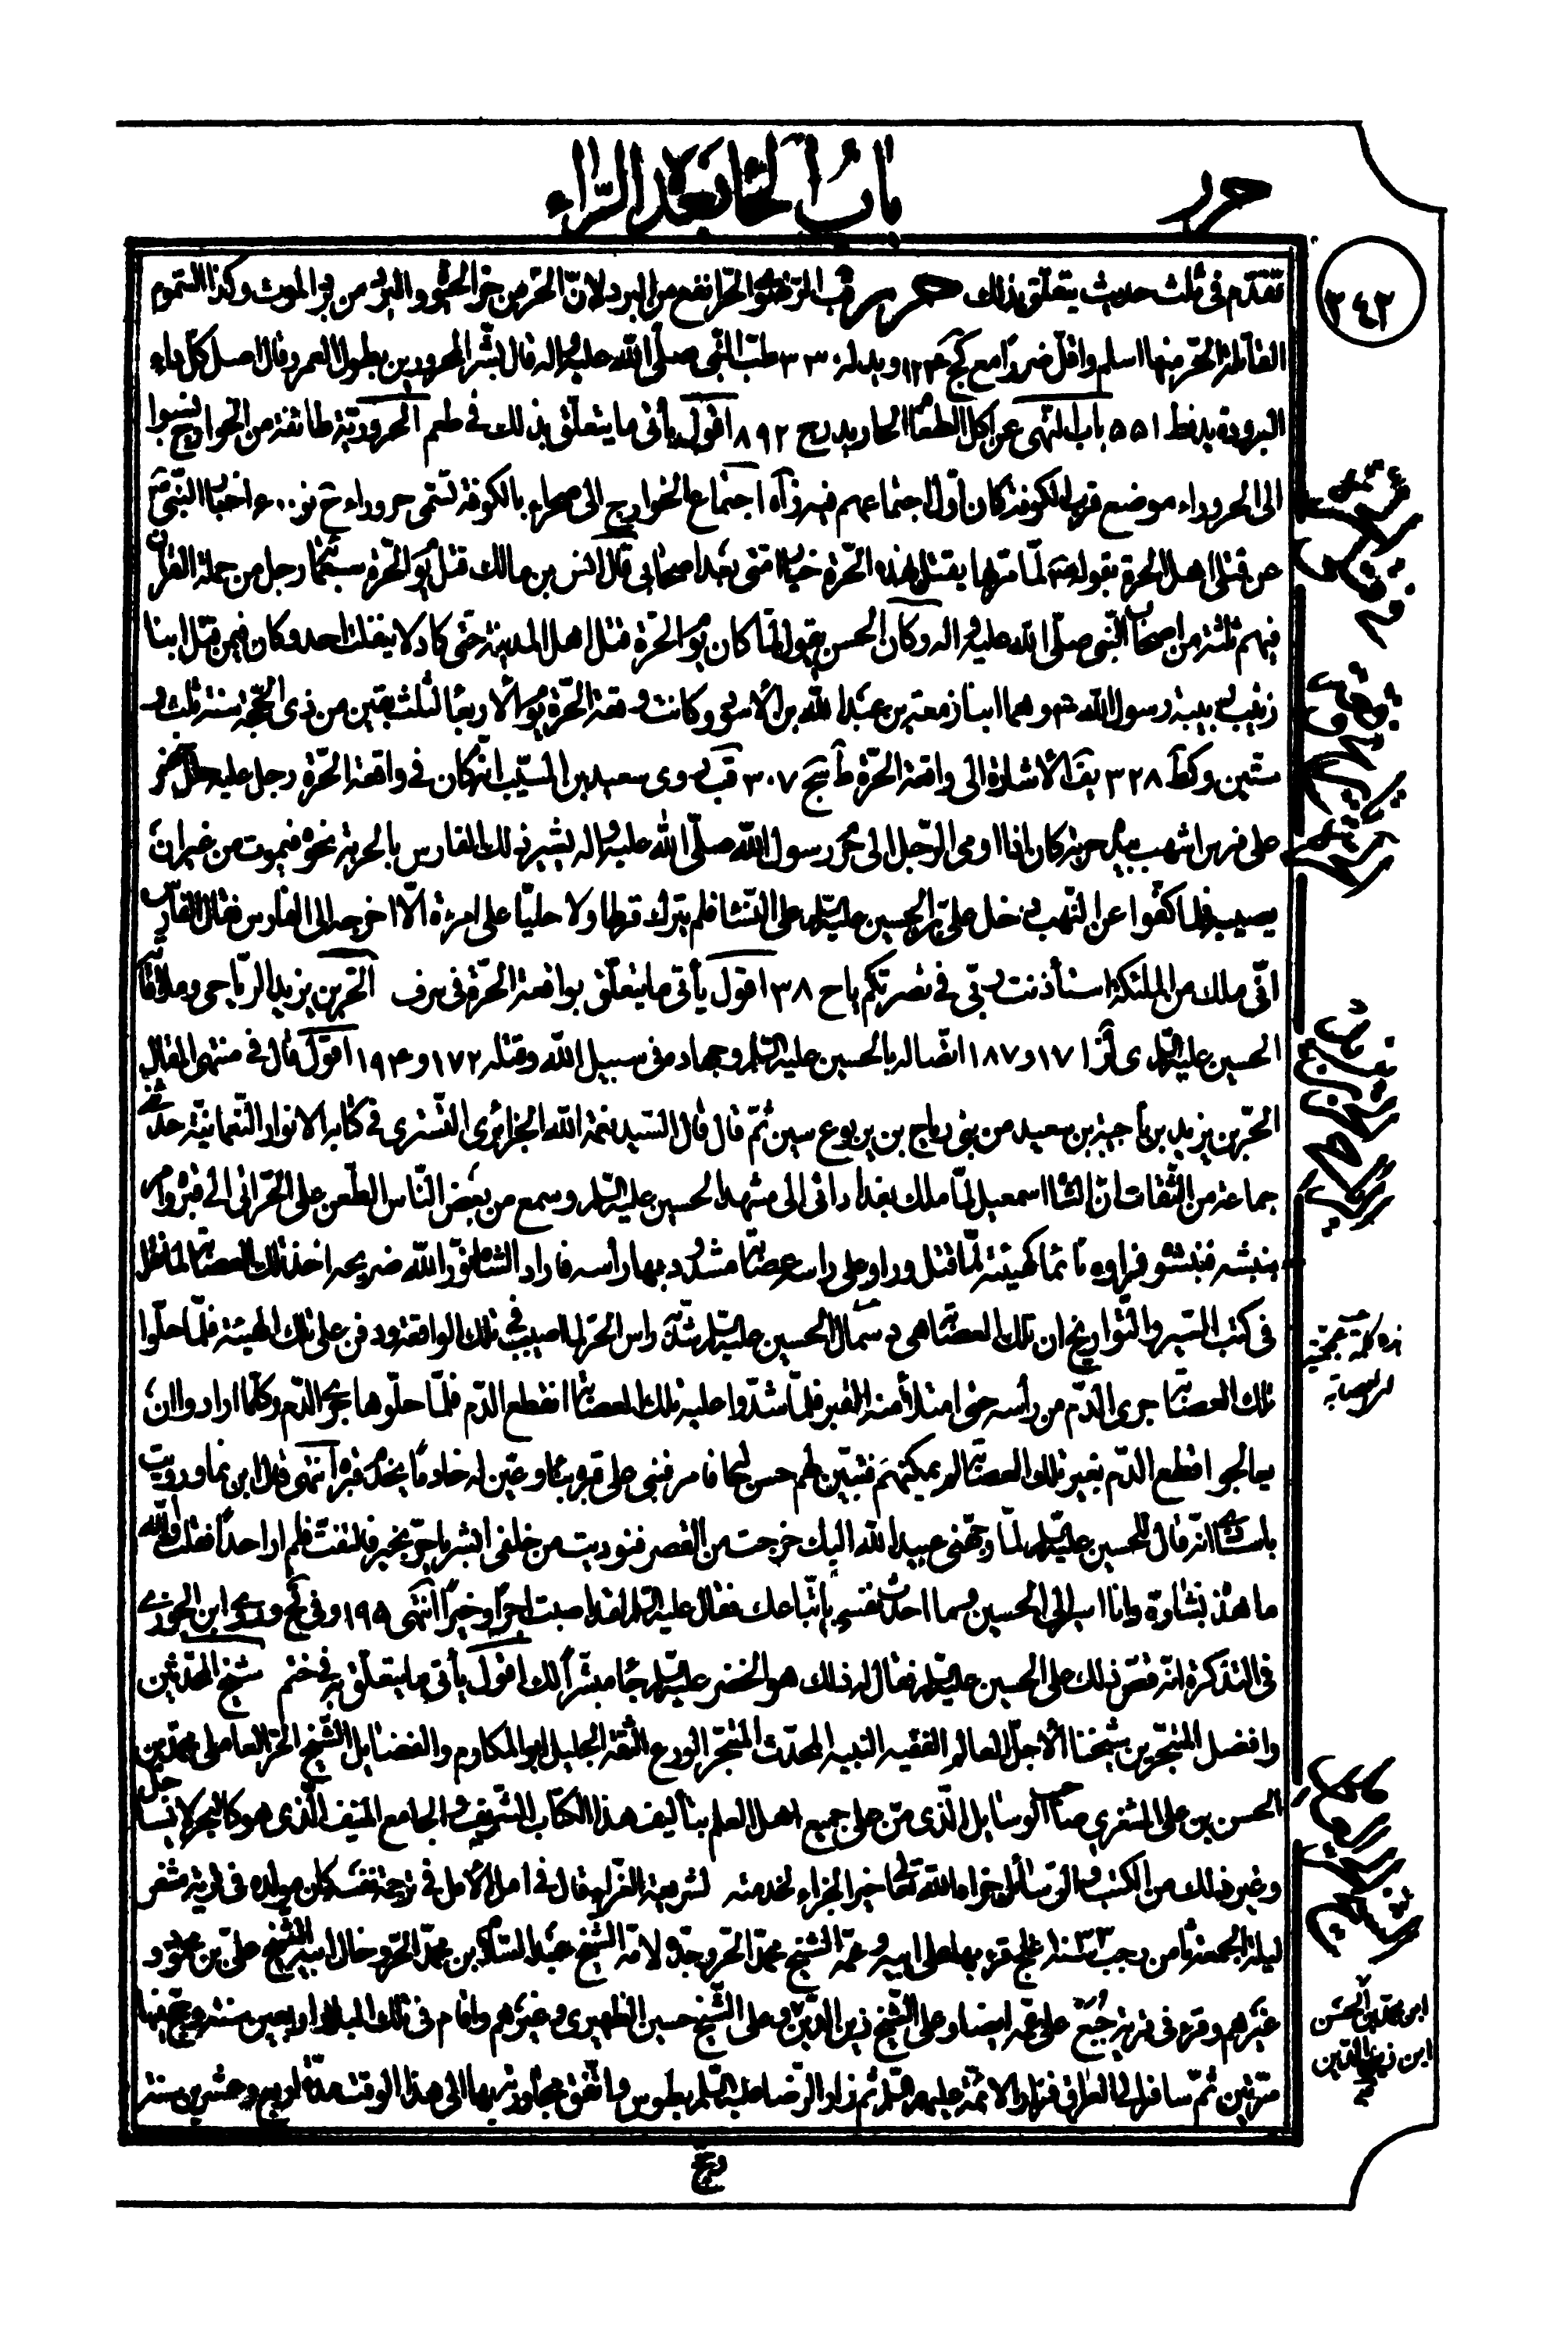 باب الحاء بعده الراء
حرر
٢٤٢
تقدّم في ثلث حديث يتعلّق بذلك حرر قب الرضا الحرّ انفع من البرد لانّ الحرّ من حرّ الحيوة والبرد من برد الموت وكذا السموم
القاتلة الحرّ منها اسلم واقلّ ضررا مع كج ١٢٣ ويد له ٣٣٠ طبّ النّبي صلّى الله عليه واله قال بشّر المحرورين بطول العمر وقال اصل كلّ داء
البرودة يد فط ٥٥١ باب النّهي عن اكل الطعام الحار يد رج ٨٩٢ اقول يأتي ما يتعلّق بذلك في طعم الحروريّة طائفة من الخوارج نسبوا
الى الحروراء موضع قرب الكوفة كان اوّل اجتماعهم فيه اجتماع الخوارج الى صحراء بالكوفة تسمّى حروراء ح نو ٦٠٠ اخبار النّبي ص
عن قتلى اهل الحرة بقوله لمّا مرّ بها يقتل بهذه الحرّة خيار امّتي بعد اصحابي قال انس بن مالك قتل يوم الحرّة سبعمائة رجل من حملة القران
فيهم ثلثة من اصحاب النّبي صلّى الله عليه واله وكان الحسن يقول لمّا كان يوم الحرّة قتل اهل المدينة حتّى كاد لا ينفلت احد وكان فيمن قتل ابنا
زينب ربيبة رسول الله ص وهما ابنا زمعة بن عبد الله بن الاسود وكانت وقعة الحرّة يوم الأربعا لثلث بقين من ذي الحجّة سنة ثلث و
ستّين وكط ٣٢٨ بقا الأشارة الى واقعة الحرّة ط نج ٣٠٧ قب روى سعيد بن المسيّب انّه كان في واقعة الحرّة رجل عليه حلل خضر
على فرس اشهب بيده حربة كان اذا اومى الرّجل الى حرم رسول الله صلّى الله عليه واله يشير ذلك الفارس بالحربة نحوه فيموت من غير ان
يصيبه فلما كفّوا عن النّهب دخل عليّ بن الحسين عليه السّلام على النّساء فلم يترك قرطا ولا حليّا على امرءة الّا اخرجه الى الفارس فقال الفارس
انّي ملك من الملئكة استأذنت ربّي في نصرتكم يا ح ٣٨ اقول يأتي ما يتعلّق بواقعة الحرّة في سرف الحرّ بن يزيد الرّياحي وملاقاة
الحسين عليه السّلام ى لز ١٧١ و ١٨٧ اتّصاله بالحسين عليه السّلام وجهاده في سبيل الله وقتله ١٧٢ و ١٩٤ اقول قال في منتهى المقال
الحرّ بن يزيد بن ناجية بن سعيد من بني رياح بن يربوع سين ثمّ قال قال السّيد نعمة الله الجزائري التّستري في كتابه الانوار النّعمانيّة حدّثني
جماعة من الثّقات انّ الشاه اسمعيل لمّا ملك بغداد اتى الى مشهد الحسين عليه السّلام وسمع من بعض النّاس الطّعن على الحرّ اتى الى قبره وامر
بنبشه فنبشوه فراوه نائما كهيئته لمّا قتل وراو على راسه عصابة مشدود بها رأسه فاراد الشاه نوّر الله ضريحه اخذ تلك العصابة لما نقل
في كتب السّير والتّواريخ ان تلك العصابة هي دسمال الحسين عليه السّلام شدّ به راس الحرّ لما اصيب في تلك الواقعة ودفن على تلك الهيئة فلمّا حلّوا
تلك العصابة جرى الدّم من رأسه حتى امتلأ منه القبر فلمّا شدّوا عليه تلك العصابة انقطع الدّم فلمّا حلّوها جرى الدّم وكلّما ارادوا ان
يعالجو اقطع الدّم بغير تلك العصابة لم يمكنهم فتبيّن لهم حسن حاله فامر فبنى على قبره بناء وعيّن له خادما يخدم قبره انتهى قال ابن نما ورويت
باسناد انّه قال للحسين عليه السّلام لمّا وجّهني عبيد الله اليك خرجت من القصر فنوديت من خلفي ابشر يا حرّ بخير فالتفتّ فلم ار احدا فقلت والله
ما هذه بشارة وانا اسير الى الحسين وما احدّث نفسي باتّباعك فقال عليه السّلام لقد اصبت اجرا وخيرا انتهى ١٩٥ وفي لج وروى ابن الجوزي
في التذكرة انّه قصّ ذلك على الحسين عليه السّلام فقال له ذلك هو الخضر عليه السّلام جاء مبشّرا لك اقول يأتي ما يتعلّق به في ختم شيخ المحدّثين
وافضل المتبحّرين شيخنا الأجلّ العالم الفقيه النبيه المحدّث المتبحّر الورع الثّقة الجليل ابو المكارم والفضايل الشّيخ الحرّ العاملي محمّد بن
الحسن بن علي المشغري صاحب الوسايل الّذي منّ على جميع اهل العلم بتأليف هذا الكتاب الشّريف والجامع المنيف الّذي هو كالبحر لا يساجل
وغير ذلك من الكتب والرّسائل جزاه الله تعالى خير الجزاء لخدمته لشريعة الغرّاء قال في امل الأمل في ترجمة نفسه كان مولده في قرية مشغر
ليلة الجمعة ثامن رجب سنة غلج قرء بها على ابيه وعمّه الشيخ محمّد الحرّ وجدّه لامّه الشّيخ عبد السّلام بن محمّد الحرّ وخال ابيه الشّيخ عليّ بن محمود و
غيرهم وقرء في قرية جبع على عمّه ايضا وعلى الشّيخ زين الدّين وعلى الشّيخ حسين الظهيري وغيرهم واقام في تلك البلاد اربعين سنة وحجّ فيها
مرّتين ثمّ سافر الى العراق فزار الائمّة عليهم السّلم ثم زار الرّضا عليه السّلم بطوس واتّفق مجاورته بها الى هذا الوقت مدّة اربع وعشرين سنة
ابن محمّد بن الحسن
ابن زين الدّين